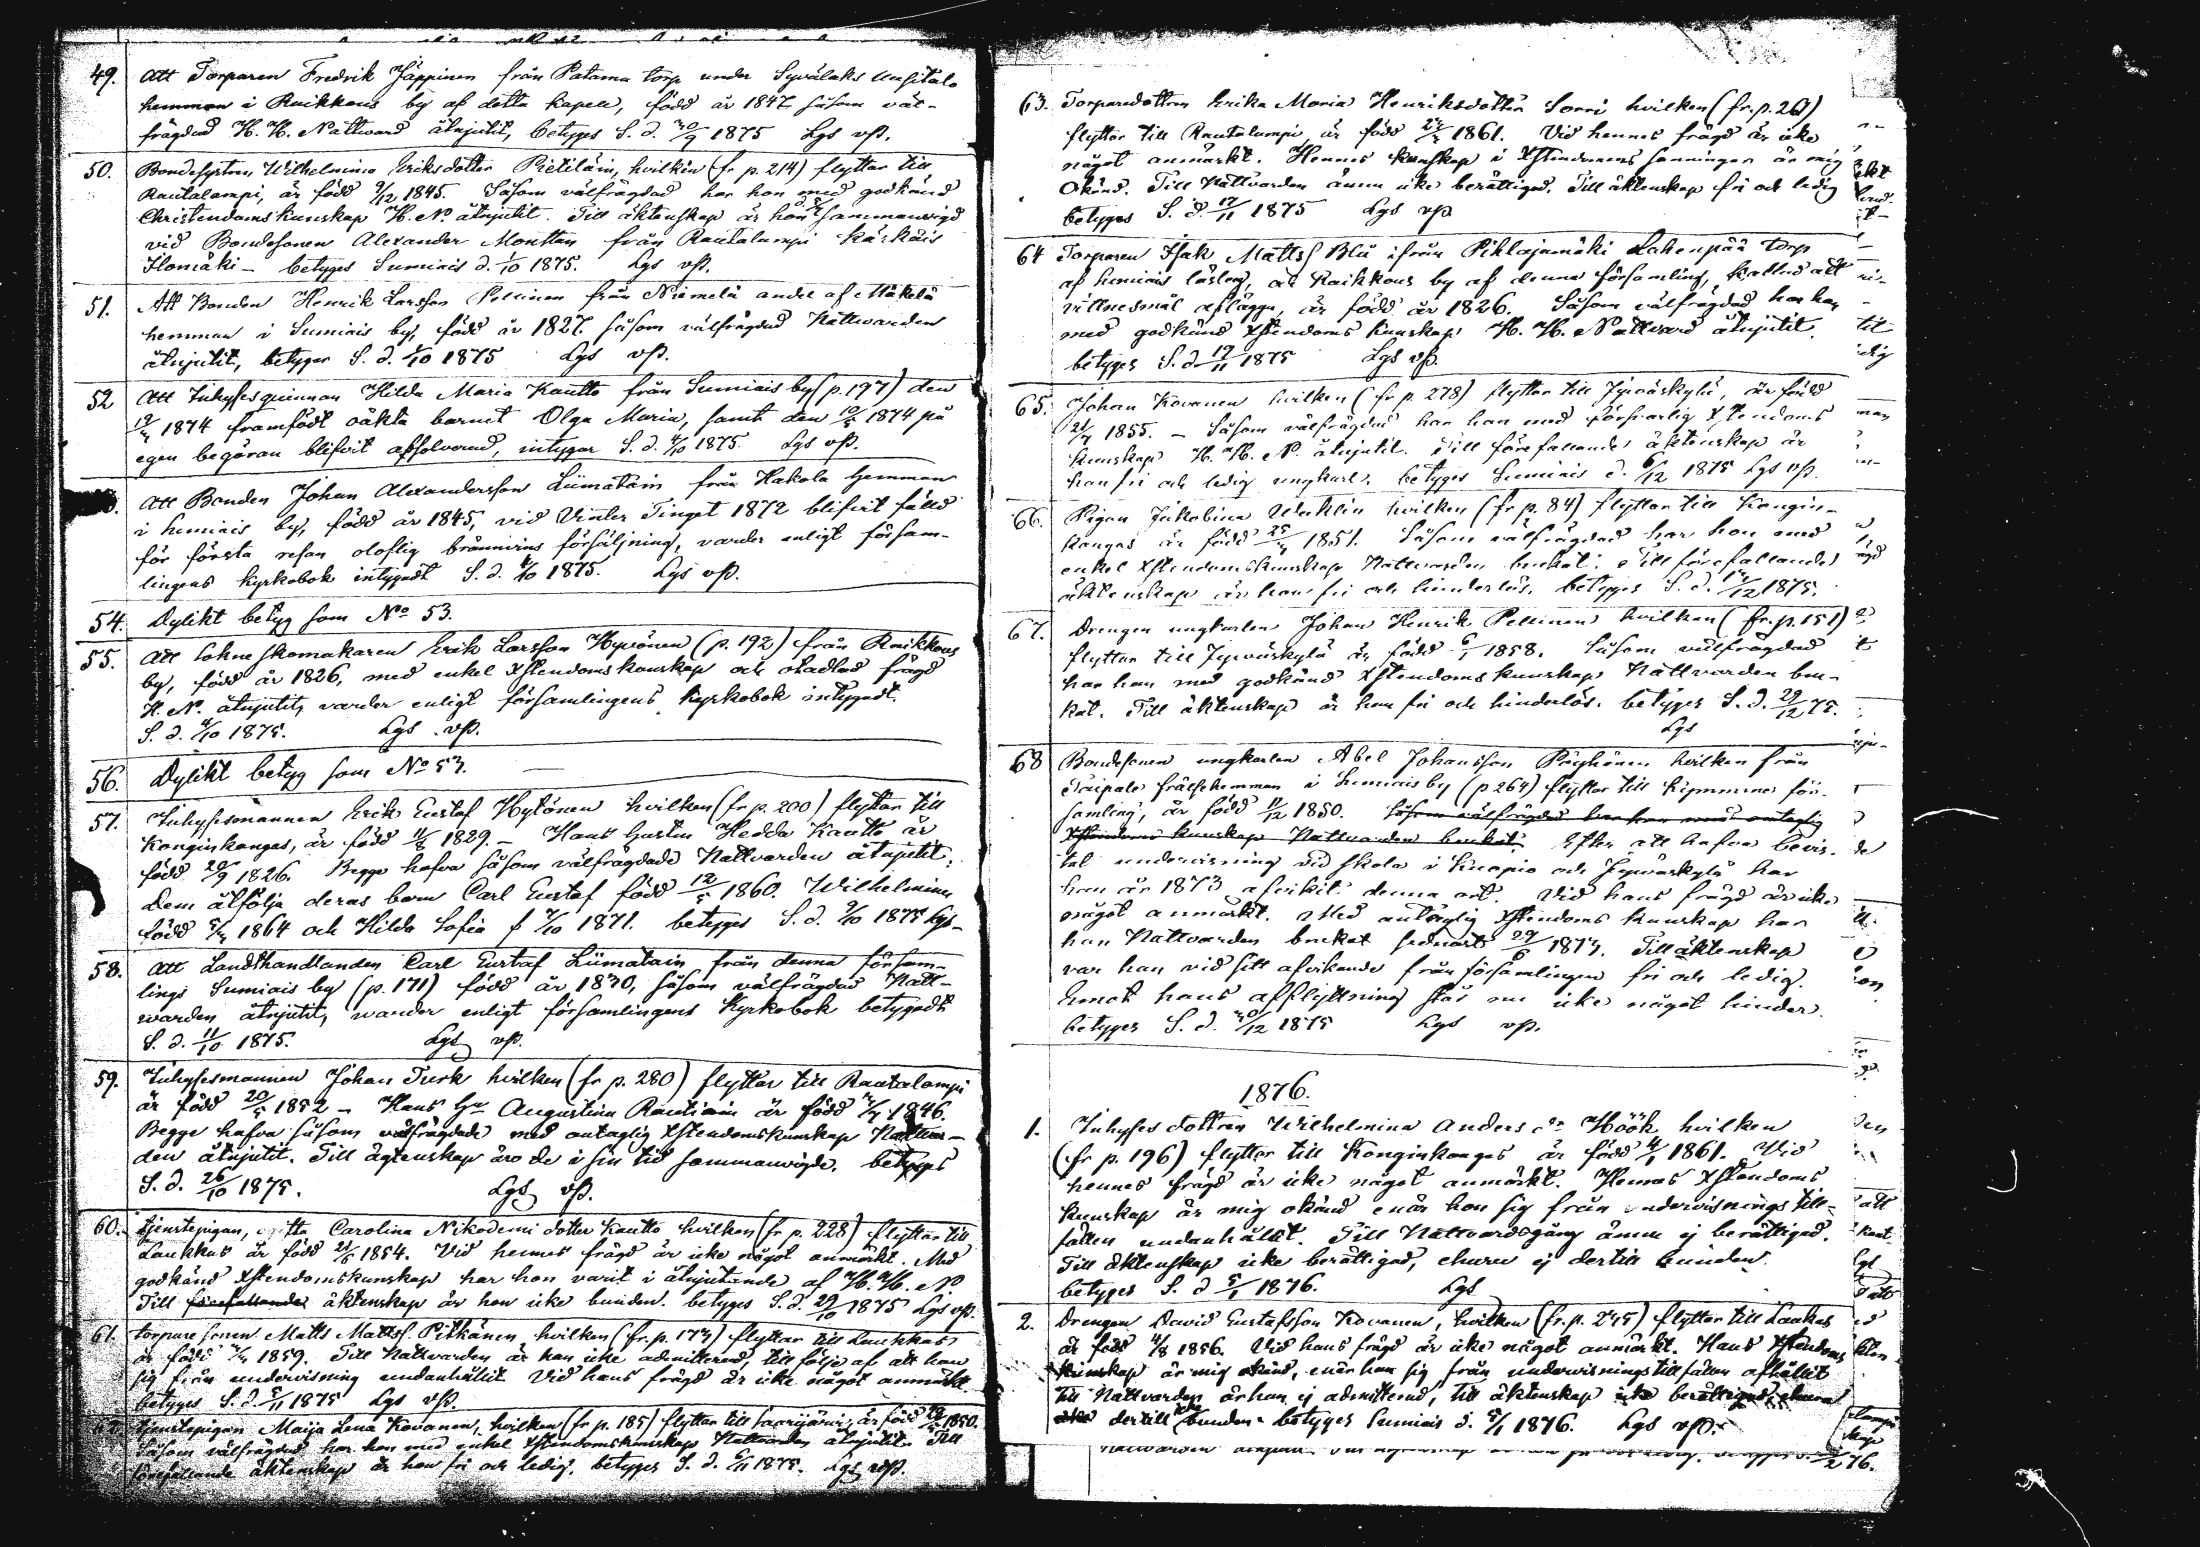 49. Att Torparen Fredrik Jäppinen från Patama torp under Syvälaks
hemman i Raikkous by af detta kapell, född år 1847 såsom väl-
frägdad H. H. Nattward åtnjutit, betyges S. d. 30/9 1875 Lgs vp.
50. Bondesystren Wilhelmina Eriksdotter Pietiläin, hvilken (fr p. 214) flyttar till
Rautalampi, är född 9/12 1845. Såsom välfrägdad har hon med godkänd
Christendomskunskap H. N. åtnjutit. Till äktenskap är hon sammanvigd
vid Bondesonen Alexander Montten från Rautalampi Kärkäis
Ilomäki – betyges Sumiais d. 1/10 1875. Lgs vp.
51. Att Bonden Henrik Larsson Pellinen från Niemelä andel af Mäkelä
hemman i Sumiais by, född år 1827. såsom välfrägdad Nattwarden
åtnjutit, betyges S. d. 1/10 1875 Lgs vp.
52 Att Inhysesquinnan Hilda Maria Kautto från Sumiais by (p. 197) den
1874 framfödt oäkta barnet Olga Maria, samt den 1874 på
egen begäran blifvit absolverad, intygar S. d. 1875. Lgs vp.
Att Bonden Johan Alexandersson Liimatain från Hakola hemman
i Sumiais by, född år 1845, vid Vinter Tinget 1872 blifvit fälld
för första resan oloflig brännvins försäljning, varder enligt försam-
lingens kyrkobok intygadt S. d. 4/10 1875. Lgs vp.
54. Dylikt betyg som No 53.
55. Att Sohne skomakaren Erik Larsson Hyvönen (p. 192) från Raikkous
by, född år 1826, med enkel Xstendomskunskap och otadlad frägd
H. N. åtnjutit, varder enligt församlingens kyrkobok intygadt.
S. d. 4/10 1875. Lgs vp.
56. Dylikt betyg som No 53.
57. Inhysesmannen Erik Gustaf Hytönen hvilken (fr p. 200) flyttar till
Konginkangas, är född 11/8 1829. – Hans hustru Hedda Kautto är
född 20/9 1826. Begge hafva såsom välfrägdade Nattvarden åtnjutit.
Dem åtfölja deras barn Carl Gustaf född 12/5 1860. Wilhelmina
född 1864 och Hilda Sofia f 1871. betyges S. d. 9/10 1875 Lgs–
58. Att Landthandlanden Carl Gustaf Liimatain från denna försam-
lings Sumiais by (p. 171) född år 1830, såsom välfrägdad Natt-
warden åtnjutit, warder enligt församlingens Kyrkobok betygadt
S. d. 11/10 1875. Lgs vp.
59. Inhysesmannen Johan Turk hvilken (fr p. 280) flyttar till Rautalampi
är född 20/5 1852 – Hans Hu Augustina Rautiain är född 1846.
Begge hafva såsom välfrägdade med antaglig Xstendomskunskap Nattvar-
den åtnjutit. Till ägtenskap äro de i sin tid sammanvigde. betyges
S. d. 26/10 1875. Lgs vp.
60. Tjenstepigan, Carolina Nikodemi dotter Kautto hvilken (fr p. 228) flyttar till
Laukkas är född 21/6 1854. Vid hennes frägd är icke något anmärkt. Med
godkänd Xstendomskunskap har hon varit i åtnjutande af H. H. N.
Till förefallande äktenskap är hon icke bunden. betyges S. d. 29/10 1875 Lgs vp.
61. torparesonen Matts Mattss. Pitkänen hvilken (fr. p. 173) flyttar till Laukkas
är född 1859. Till Nattvarden är han icke admitterad, till följe af att han
sig från undervisning undanhållit Vid hans frägd är icke något anmärkt
betyges S. d. 5/11 1875 Lgs vp.
62. tjenstepigan Maija Lena Kovanen, hvilken (fr p. 185) flyttar till Saarijärvi, är född 1850.
Såsom välfrägdad har hon med enkel Xstendomskunskap Nattvarden åtnjutit. Till
förefallande äktenskap är hon fri och ledig. betyges S. d. 6/11 1875. Lgs vp.
63. Torparedottren Erika Maria Henriksdotter Sorri hvilken (fr. p. 261)
flyttar till Rautalampi, är född 1861. Vid hennes frägd är icke
något anmärkt. Hennes kunskap i Xstendomens sanningar är mig
okänd. Till Nattvarden ännu icke berättigad. Till äktenskap fri och ledig
betyges S. d. 17/11 1875 Lgs vp
64 Torparen Isak Mattss Blå ifrån Pihlajamäki Lahenpää torp
af Sumiais läslag, och Raikkous by af denna församling, kallad att
vittnesmål aflägga, är född år 1826. Såsom välfrägdad har han
med godkänd Xstendoms kunskap H. H. Nattward åtnjutit.
betyges S. d 19/11 1875 Lgs vp.
65. Johan Kovanen hvilken (fr p. 278) flyttar till Jyväskylä, är född
1855. – Såsom välfrägdad har han med försvarlig Xstendoms
kunskap H. H. N. åtnjutit. Till förefallande äktenskap är
han fri och ledig ungkarl. betyges Sumiais d. 6/12 1875 Lgs vp.
66. Pigan Jakobina Wecklin hvilken (fr p. 84) flyttar till Kongin-
kangas är född 1851. Såsom välfrägdad har hon med
enkel Xstendomskunskap Nattvarden brukat. Till förefallande
äktenskap är hon fri och hinderlös. betyges S. d. 1875.
67. Drengen ungkarlen Johan Henrik Pellinen hvilken (fr. p. 151)
flyttar till Jyväskylä är född 6/1 1858. Såsom välfrägdad
har han med godkänd Xstendoms kunskap Nattvarden bru-
kat. Till äktenskap är han fri och hinderlös. betyges S. d. 29/12 75.
Lgs
68 Bondesonen ungkarlen Abel Johansson Pöyhönen hvilken från
Taipale frälsehemman i Sumiais by (p 264) flyttar till Kymmene för-
samling, är född 11/12 1850. Såsom välfrägdad har han med antaglig
Xstendoms kunskap Nattvarden brukat. Efter att hafva bevis-
tat undervisning vid skola i Kuopio och Jyväskylä har
han år 1873 afvikit denna ort. Vid hans frägd är icke
något anmärkt. Med antaglig Xstendoms kunskap har
han Nattvarden brukat sednast 29/6 1873. Till äktenskap
var han vid sitt afvikande från församlingen fri och ledig.
Emot hans afflyttning står nu icke något hinder.
betyges S. d. 30/12 1875 Lgs vp.
1876.
1. Inhyses dottren Wilhelmina Anders dr Höök hvilken
(fr p. 196) flyttar till Konginkangas är född 4/1 1861. Vid
hennes frägd är icke något anmärkt. Hennes Xstendoms
kunskap är mig okänd enär hon sig från undervisnings till-
fällen undanhållit. Till Nattvardsgång ännu ej berättigad.
Till äktenskap icke berättigad, ehuru ej dertill bunden.
betyges S. d 5/1 1876. Lgs
2. Drengen David Gustafsson Kovanen, hvilken (fr. p. 245) flyttar till Laukas
är född 4/8 1856. Vid hans frägd är icke något anmärkt. Hans Xstendoms
kunskap är mig okänd, enär han sig från undervisningstillfällen afhållit
till Nattvarden är han ej admitterad, till äktenskap icke berättigad, ehuru
icke dertill bunden. betyges Sumiais d. 5/1 1876. Lgs vp.